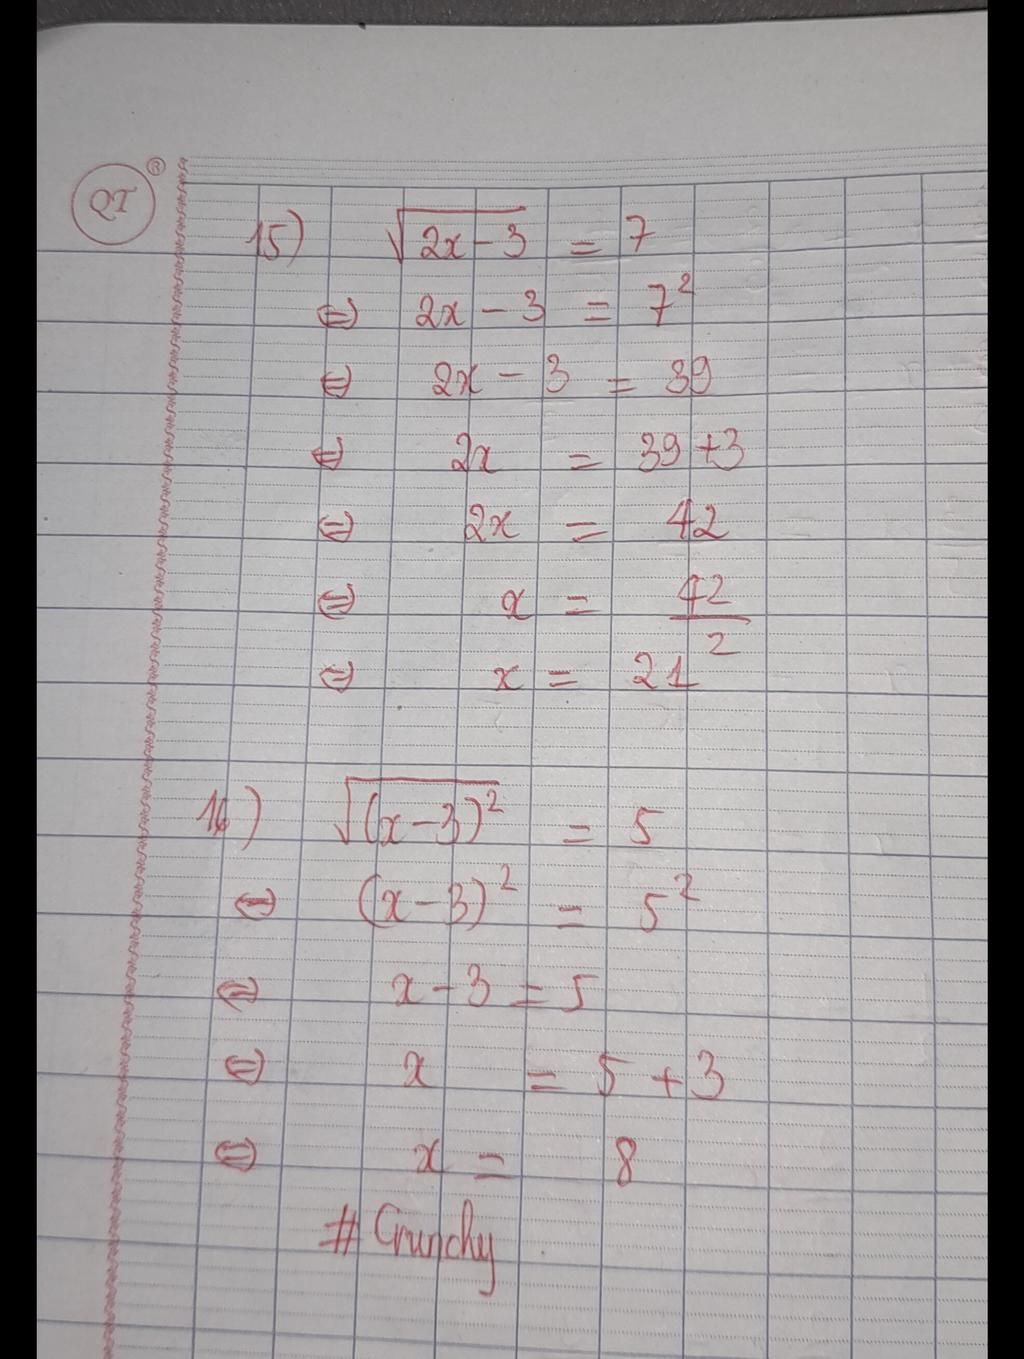 QT
15) √(2x-3) = 7
⇔ 2x-3 = 7²
⇔ 2x-3 = 39
⇔ 2x = 39+3
⇔ 2x = 42
⇔ x = 42/2
⇔ x = 21
16) √((x-3)²) = 5
⇔ (x-3)² = 5²
⇔ x-3 = 5
⇔ x = 5+3
⇔ x = 8
# Crunchy